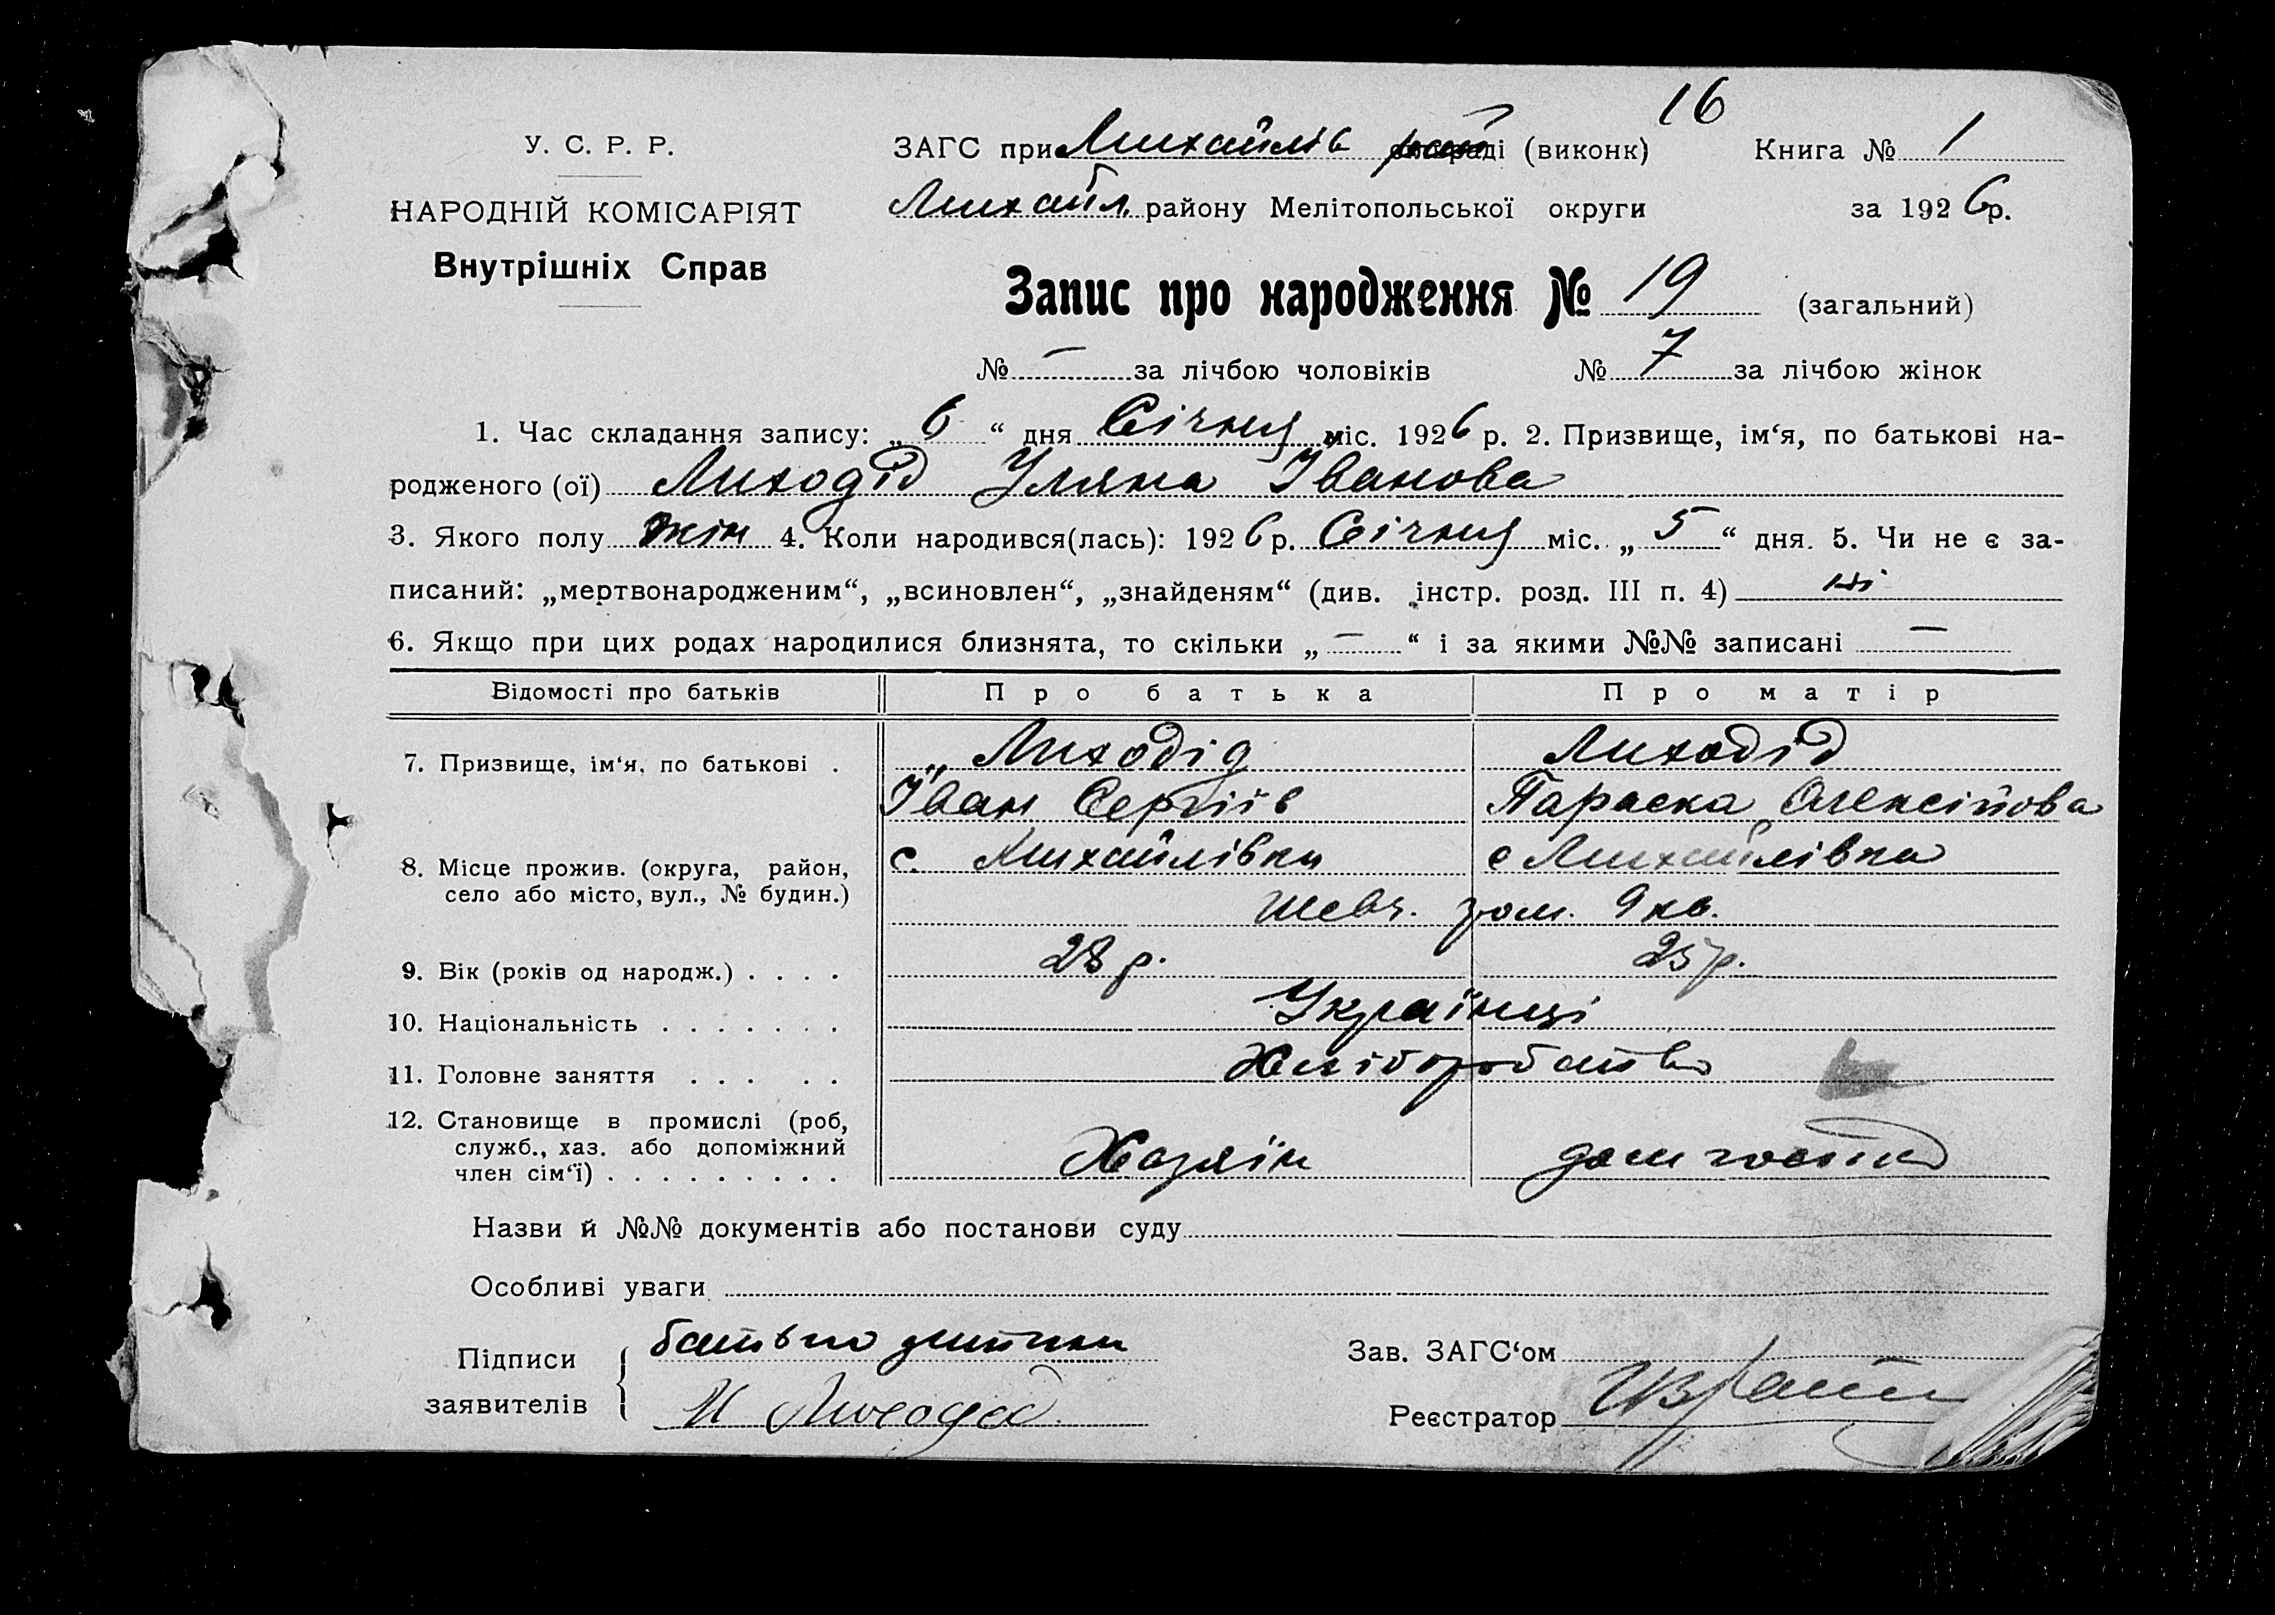 16
У. С. Р. Р.
НАРОДНІЙ КОМІСАРІЯТ
Внутрішніх Справ
ЗАГС при Михайлів раді (виконк) Книга № 1
Михайл. району Мелітопольської округи за 1926 р.
Запис про народження № 19 (загальний)
№ — за лічбою чоловіків № 7 за лічбою жінок
1. Час складання запису: „6“ дня Січня міс. 1926 р. 2. Призвище, ім‘я, по батькові на-
родженого (ої) Лиходід Уляна Іванова
3. Якого полу жін 4. Коли народився(лась): 1926 р. Січня міс. „5“ дня. 5. Чи не є за-
писаний: „мертвонародженим“, „всиновлен“, „знайденям“ (див. інстр. розд. III п. 4) ні
6. Якщо при цих родах народилися близнята, то скільки „—“ і за якими №№ записані —
Відомості про батьків Про батька Про матір
7. Призвище, ім‘я, по батькові . Лиходід Лиходід
Іван Сергіїв Параска Олексійова
8. Місце прожив. (округа, район, с. Михайлівки с Михайлівка
село або місто, вул., № будин.) Шевч. гром. 9 кв.
9. Вік (років од народж.) . . . . 28 р. 25 р.
10. Національність . . . . . . . Українці
11. Головне заняття . . . . . Хліборобство
12. Становище в промислі (роб,
служб., хаз. або допоміжний Хазяїн
член сім‘ї) . . . . . . . . .
Назви й №№ документів або постанови суду
Особливі уваги
Підписи батько дитини Зав. ЗАГС‘ом
заявителів И Лиходід Реєстратор